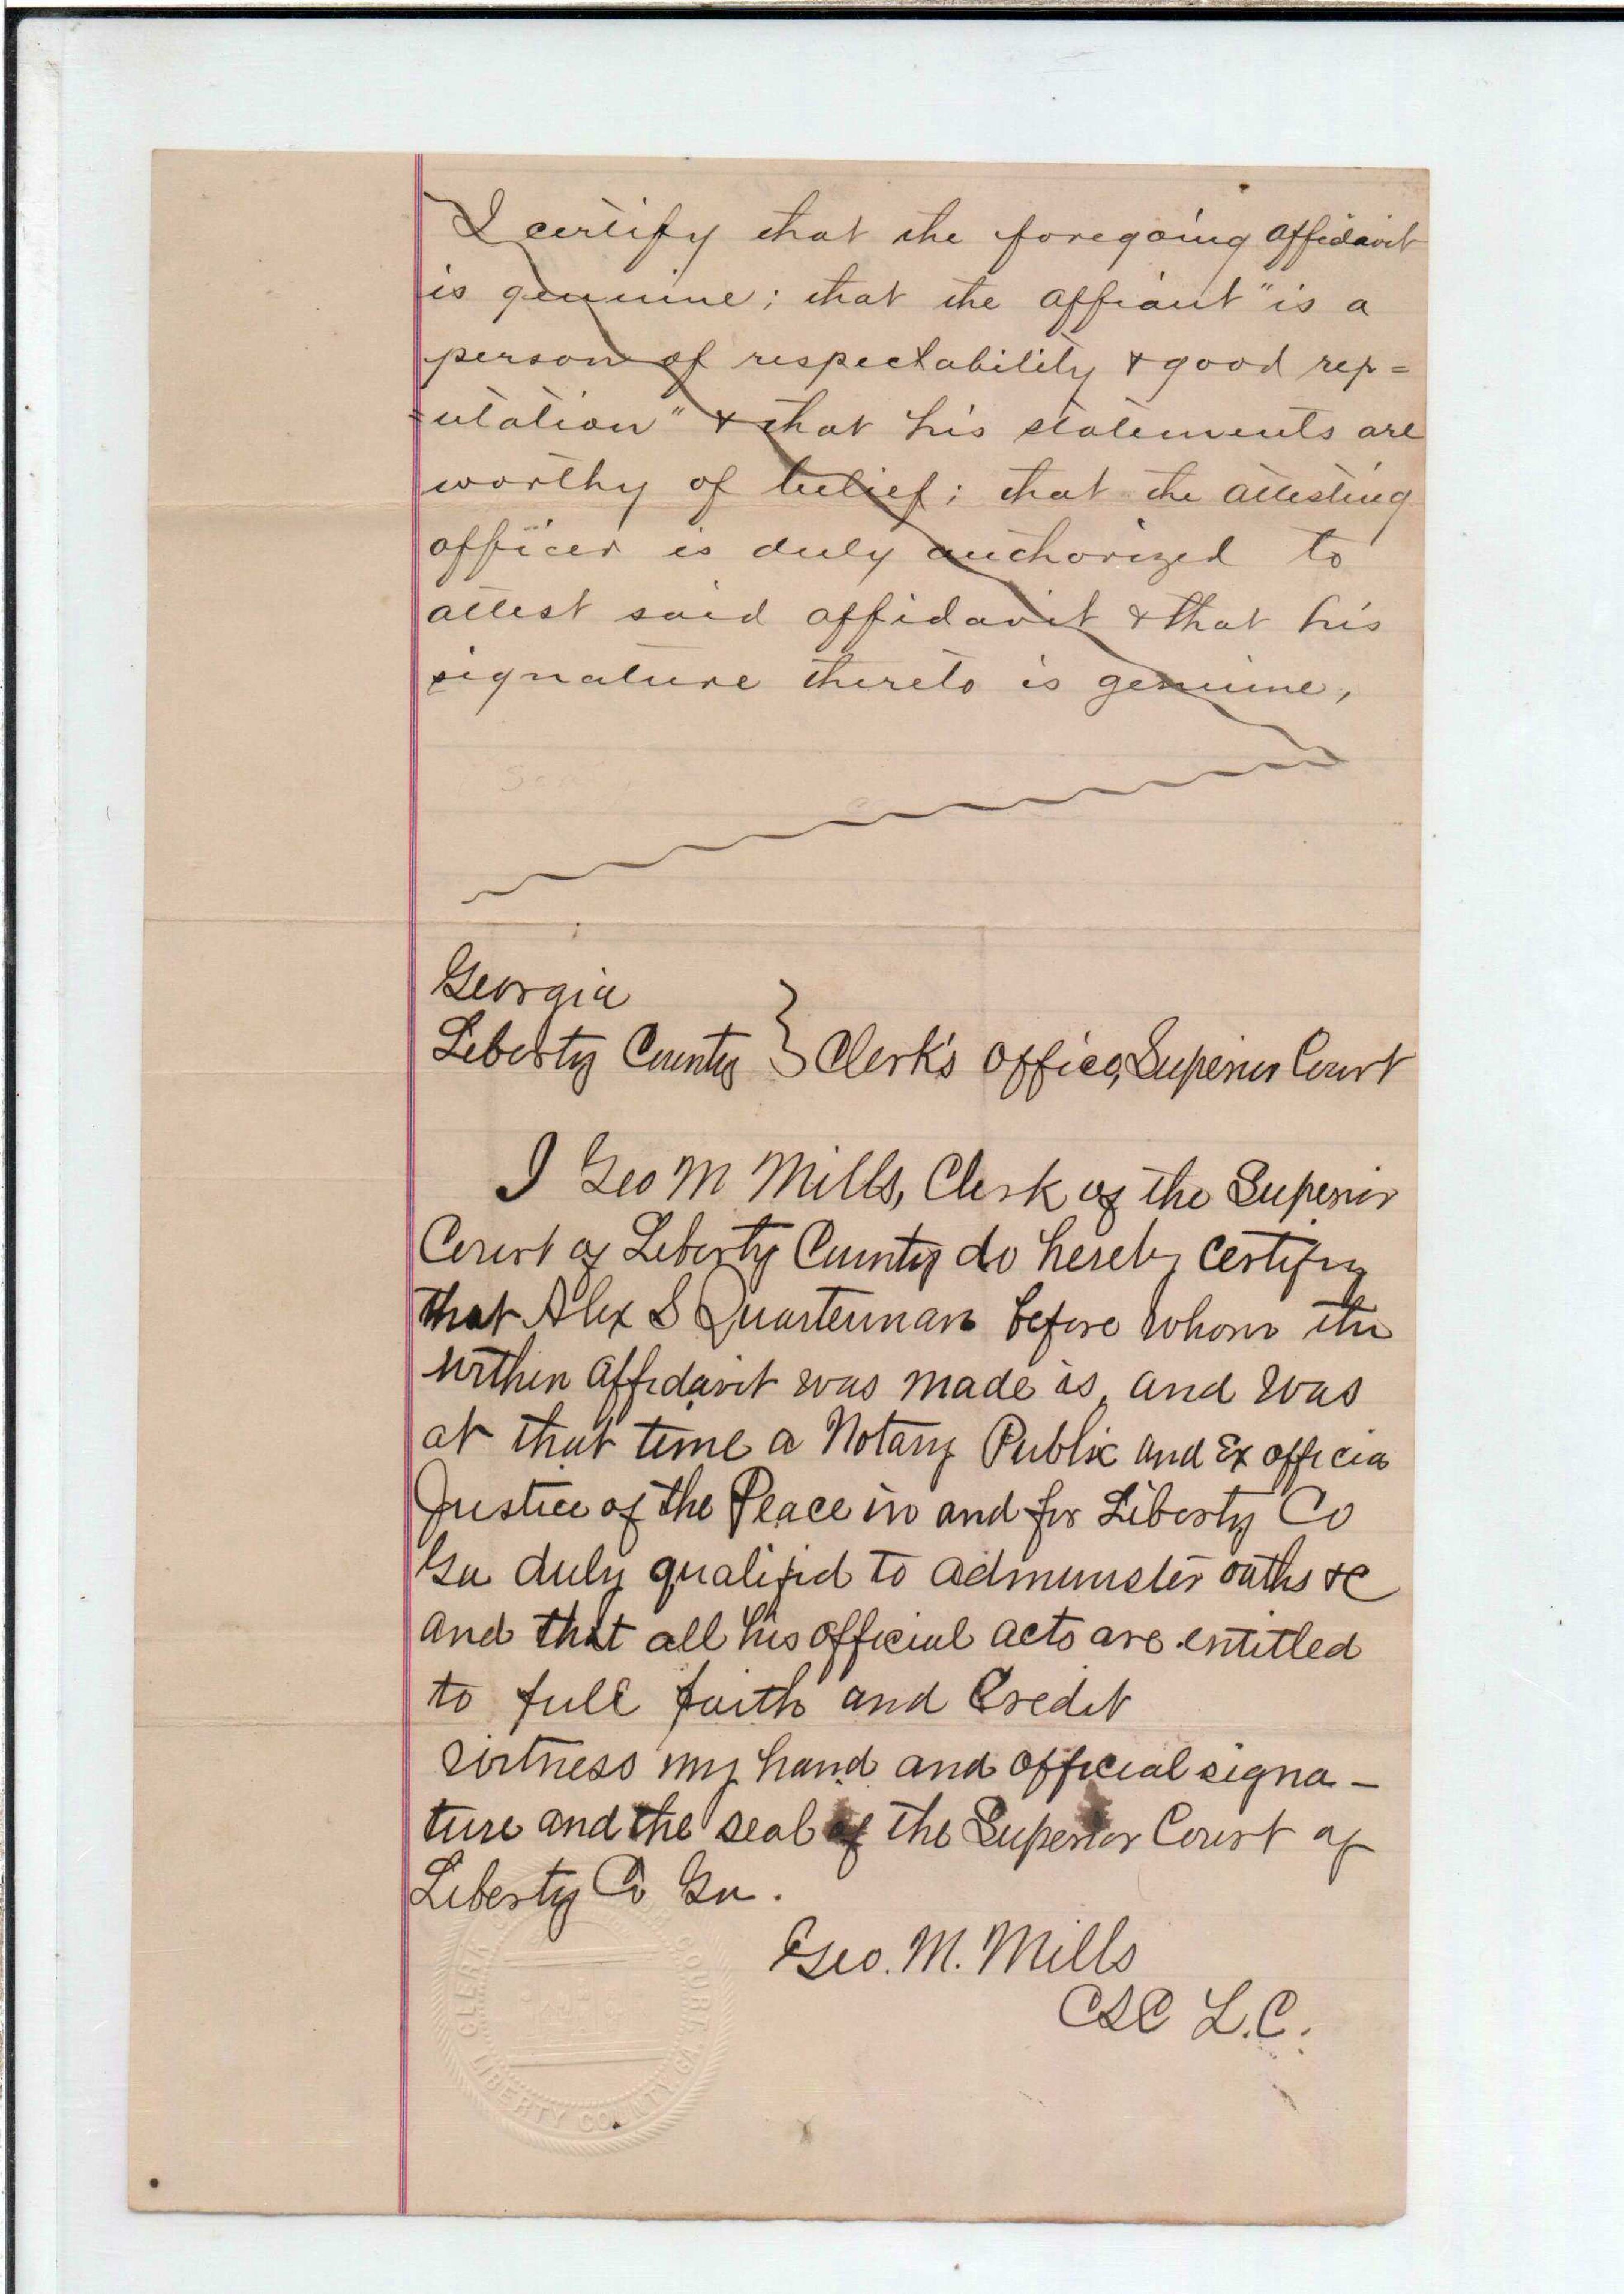 I certify that the foregoing affidavit
is genuine; that the affiant "is a
person of respectability & good rep=
=utation" & that his statements are
worthy of belief; that the attesting
officer is duly authorized to
attest said affidavit & that his
signature thereto is genuine,
Georgia
Liberty County } Clerk's office, Superior Court
I Geo M Mills, Clerk of the Superior
Court of Liberty County do hereby certify
that Alex S Quarterman before whom the
within affidavit was made is, and was
at that time a Notary Public and Ex officio
Justice of the Peace in and for Liberty Co
Ga duly qualified to administer oaths &c
and that all his official acts are entitled
to full faith and Credit
witness my hand and official signa-
ture and the seal of the Superior Court of
Liberty Co Ga.
Geo. M. Mills
CSC L.C.
CLERK COURT
LIBERTY COUNTY, GA.